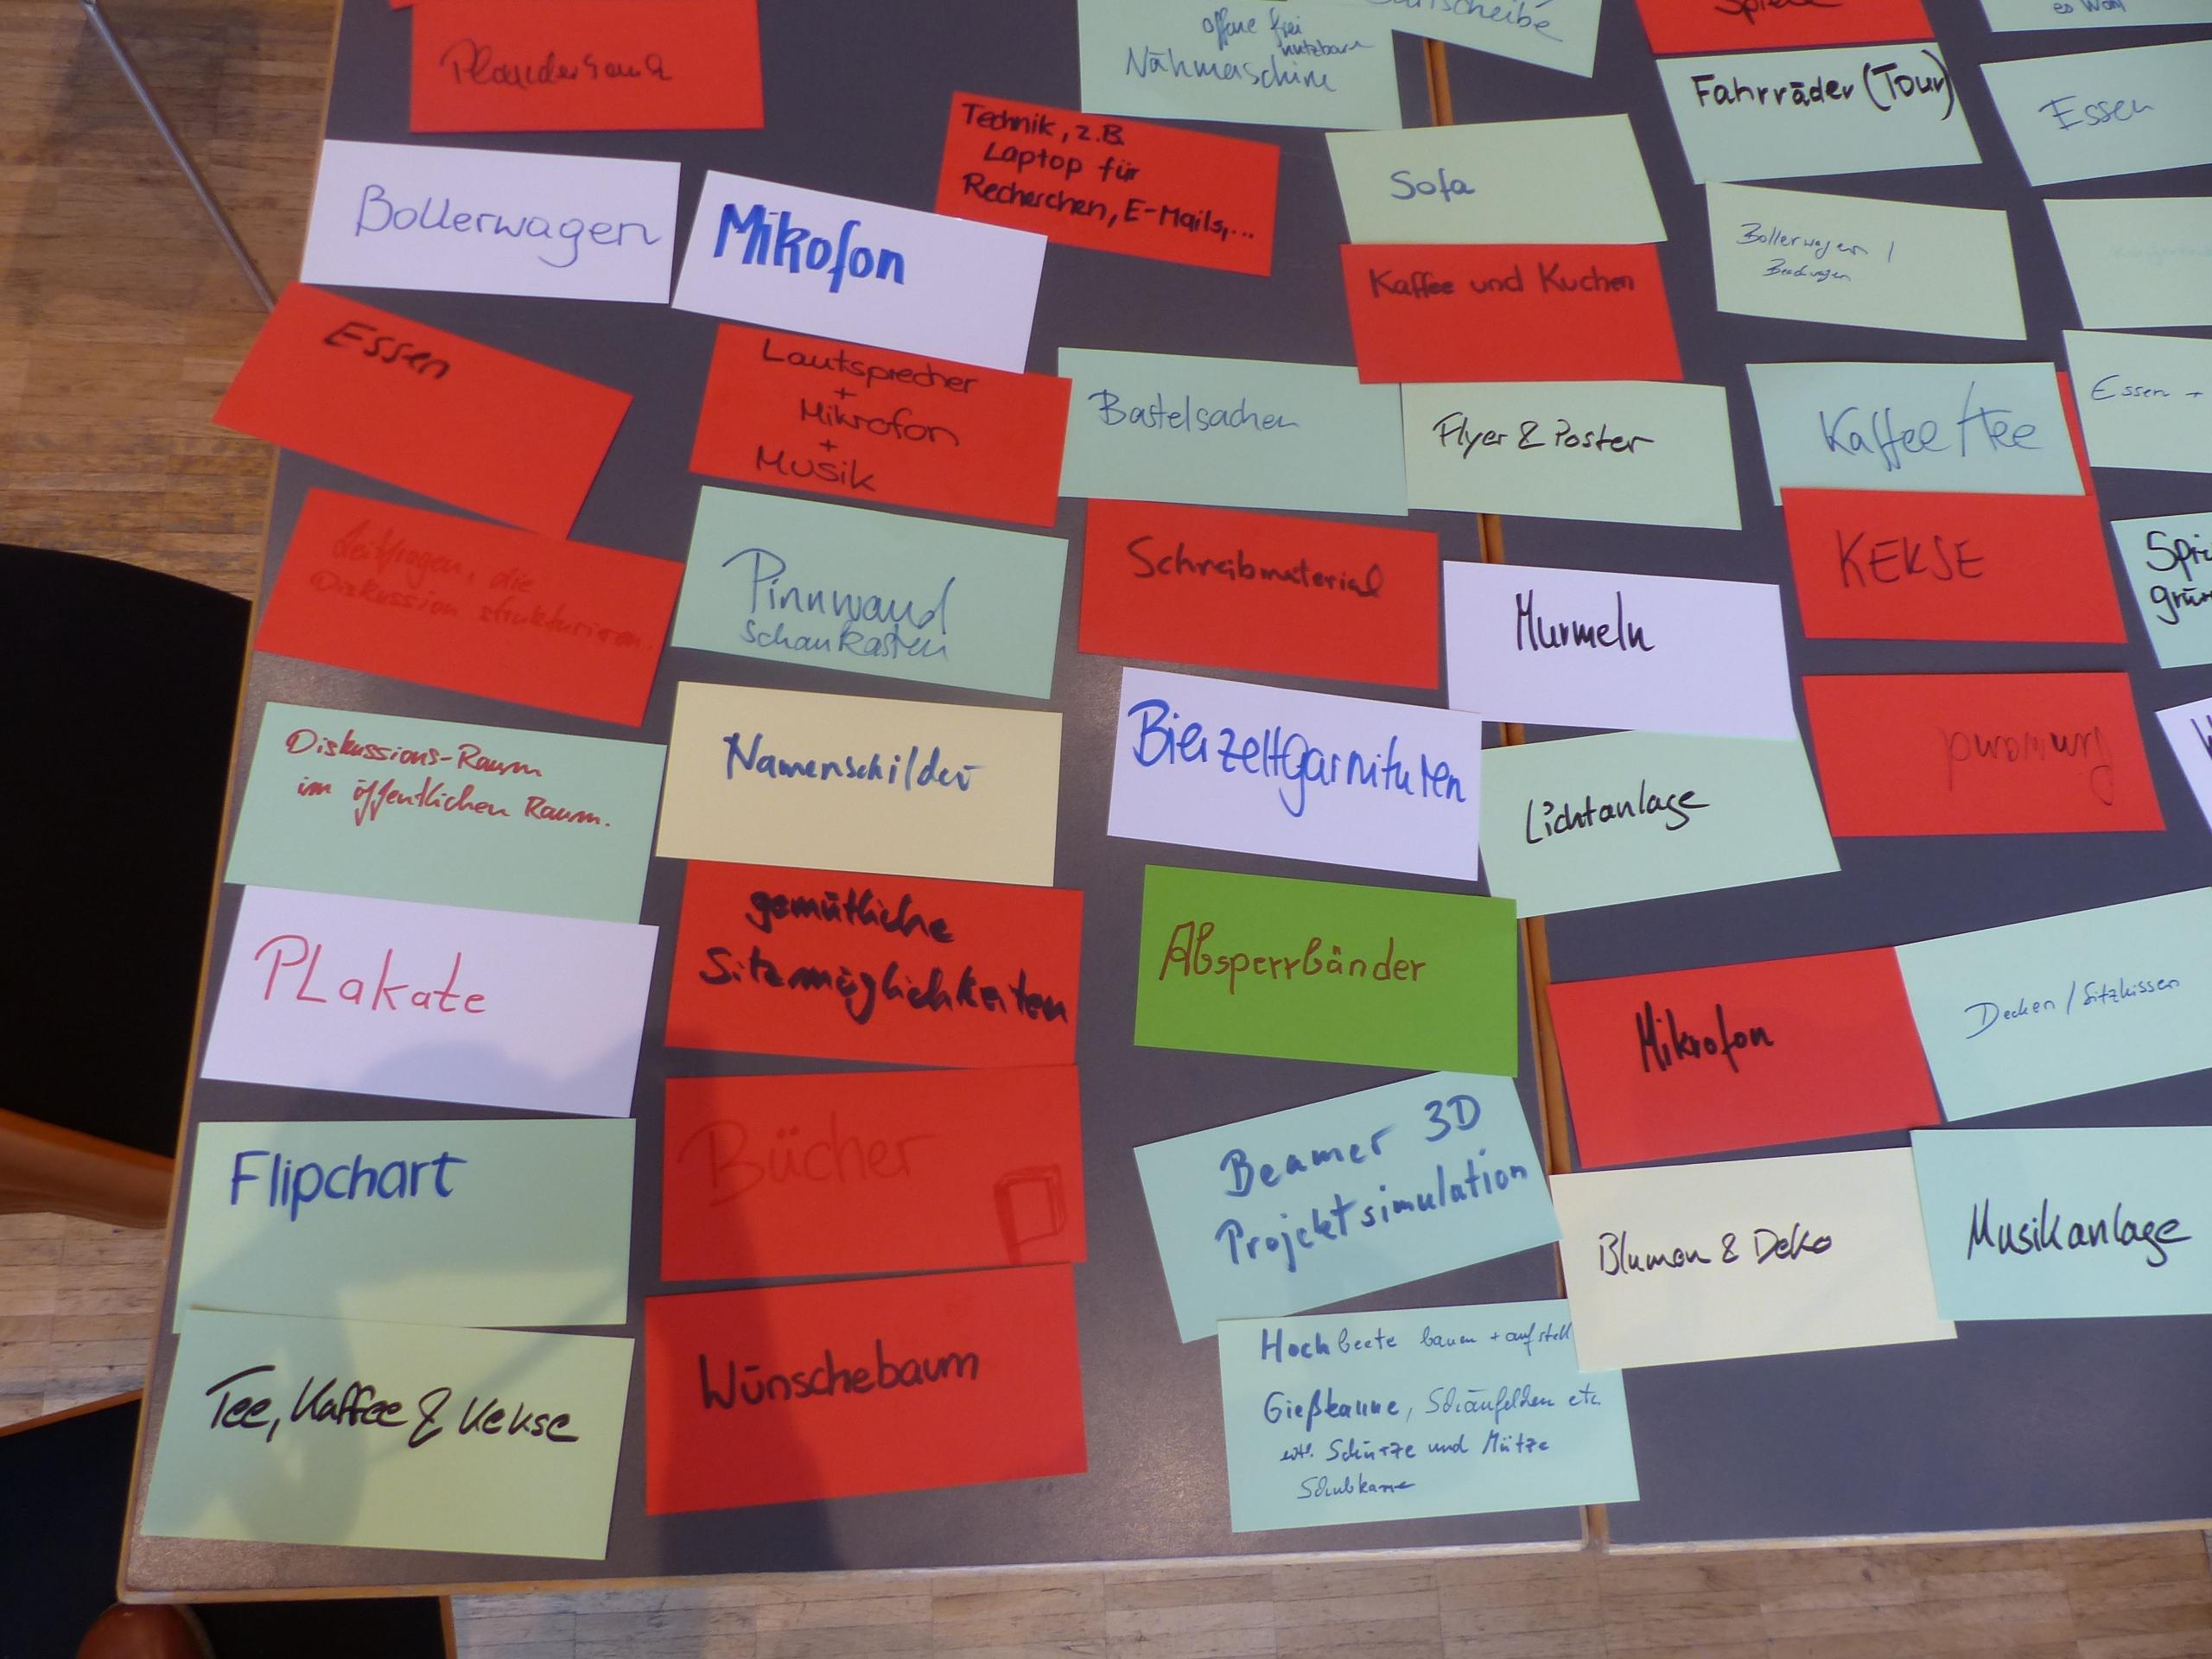 offene frei
nutzbare
Nähmaschine
Fahrräder (Tour)
Essen
Technik, z.B.
Laptop für
Recherchen, E-Mails,...
Sofa
Bollerwagen
Mikofon
Kaffee und Kuchen
Bollerwagen /
Essen
Lautsprecher
+
Mikrofon
+
Musik
Bastelsachen
Flyer & Poster
Kaffee/Tee
Essen +
Leitfragen, die
Diskussion strukturieren.
Pinnwand
Schaukasten
Schreibmaterial
Murmeln
KEKSE
Diskussions-Raum
im öffentlichen Raum.
Namenschilder
Bierzeltgarnituren
Lichtanlage
Pinnwand
PLakate
gemütliche
Sitzmöglichkeiten
Absperrbänder
Mikrofon
Decken / Sitzkissen
Flipchart
Bücher
Beamer 3D
Projektsimulation
Blumen & Deko
Musikanlage
Tee, Kaffee & Kekse
Wünschebaum
Hochbeete bauen + aufstell
Gießkanne, Schäufelchen etc.
evtl. Schürze und Mütze
Schubkarre